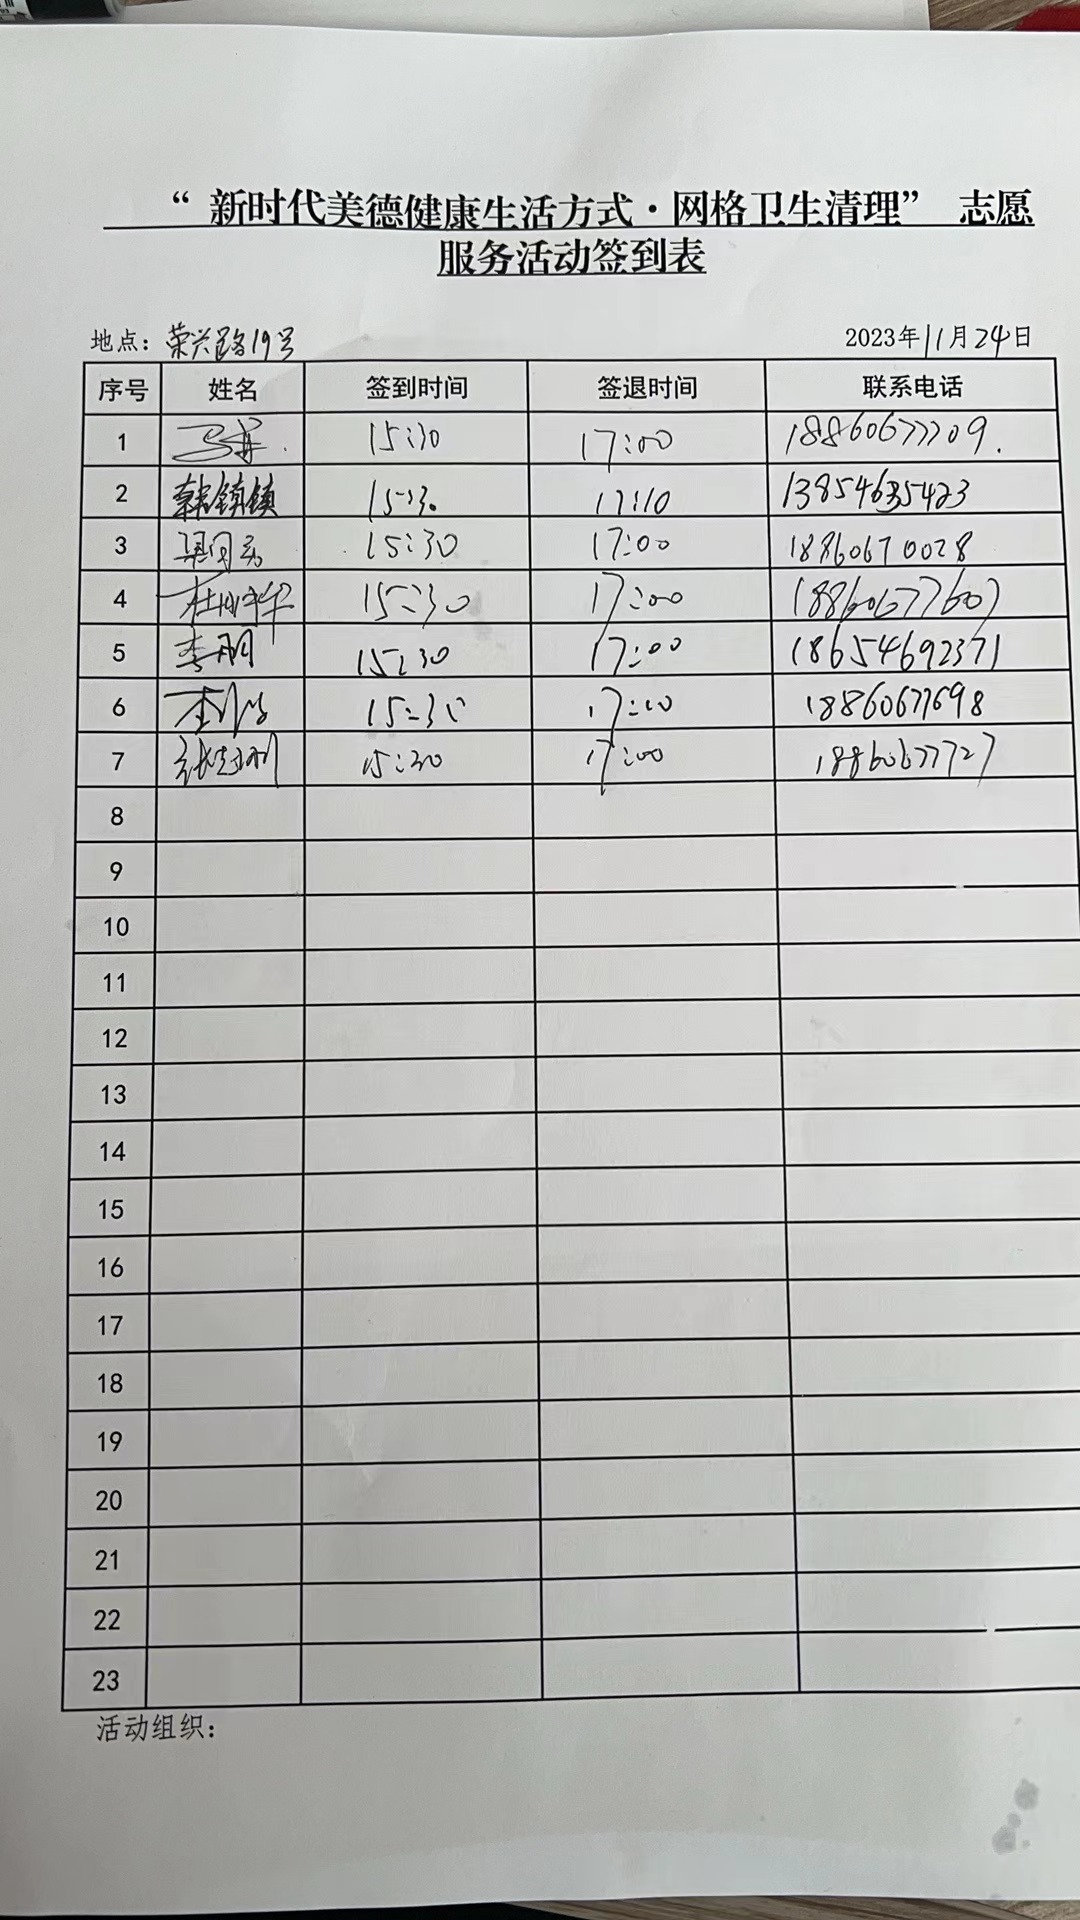 “ 新时代美德健康生活方式·网格卫生清理” 志愿
服务活动签到表
地点：荣兴路19号 2023年11月24日
序号 姓名 签到时间 签退时间 联系电话
1 15:30 17:00 18860677709.
2 韩镇镇 15:30 17:10 13854635423
3 15:30 17:00 18860670028
4 15:30 17:00 18860677607
5 李明 15:30 17:00 18654692371
6 15:30 17:00 18860677698
7 15:30 17:00 18860677727
8
9
10
11
12
13
14
15
16
17
18
19
20
21
22
23
活动组织：